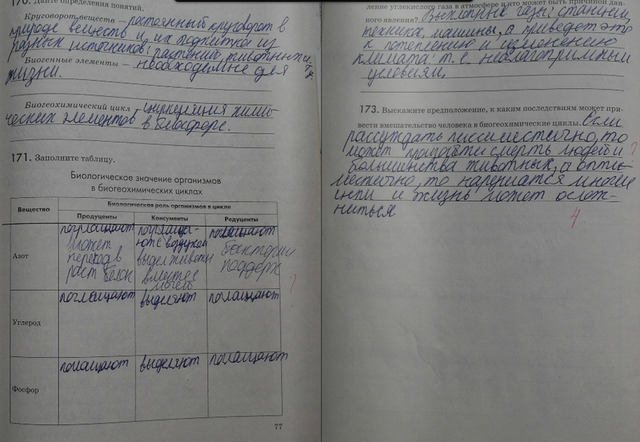 170. Дайте определения понятий.
Круговорот веществ – постоянный круговорот в
природе веществ и их подпитка из
разных источников: растений, животных и
Биогенные элементы – необходимые для
жизни.
Биогеохимический цикл – циркуляция хими-
ческих элементов в биосфере.
171. Заполните таблицу.
Биологическое значение организмов
в биогеохимических циклах
Вещество
Биологическая роль организмов в цикле
Продуценты Консументы Редуценты
Азот
поглощают
может
переход в
раст белок
поглоща-
ют с воздухом
выдел
вместе с
мочей
поглощают
бактерии
поддерж
?
Углерод
поглощают выделяют поглощают
Фосфор
поглощают выделяют поглощают
77
ление углекислого газа в атмосфере и что может быть причиной дан-
ного явления? Выхлопные газы: станции,
техника, машины, а приведет это
к потеплению и изменению
климата т.е. неблагоприятным
условиям.
173. Выскажите предположение, к каким последствиям может при-
вести вмешательство человека в биогеохимические циклы. Если
рассуждать пессимистично, то
может произойти смерть людей и ?
большинства животных, а опти-
мистично, то нарушатся многие
цепи и жизнь может ослож-
ниться
4